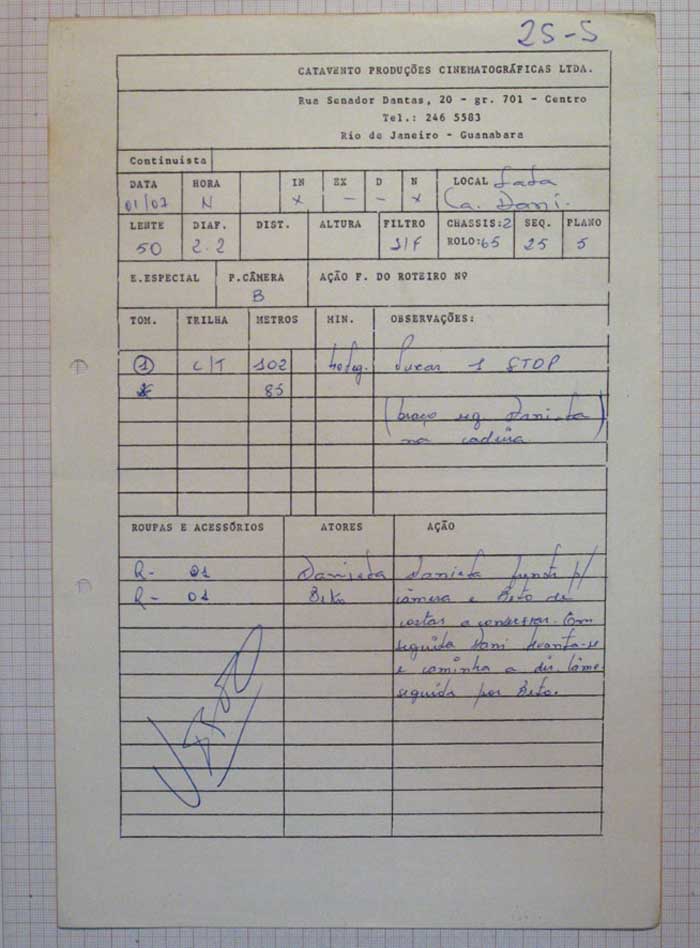 25-5
CATAVENTO PRODUÇÕES CINEMATOGRÁFICAS LTDA.
Rua Senador Dantas, 20 - gr. 701 - Centro
Tel.: 246 5583
Rio de Janeiro - Guanabara
Continuista
DATA HORA IN EX D N LOCAL
01/07 N x - - x Ca. Dani.
LENTE DIAF. DIST. ALTURA FILTRO CHASSIS:2 SEQ. PLANO
50 2.2 S/F ROLO:65 25 5
E.ESPECIAL P.CÂMERA AÇÃO F. DO ROTEIRO Nº
B
TOM. TRILHA METROS MIN. OBSERVAÇÕES:
1 C/T 102 Puxar 1 STOP
85
(braço esq. Daniela)
na cadeira
ROUPAS E ACESSÓRIOS ATORES AÇÃO
R- 01 Daniela Daniela frente p/
R- 01 Beto câmera e Beto de
costas a conversar. Em
seguida Dani levanta-se
e caminha a dir. câme.
seguida por Beto.